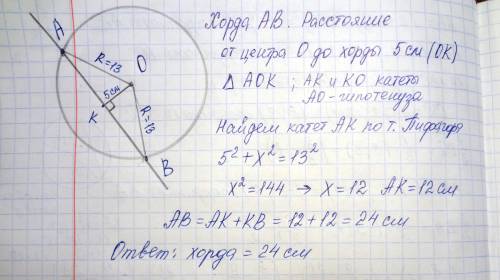 A
R=13
O
5см
K
R=13
B
Хорда AB. Расстояние
от центра O до хорды 5 см (OK)
△ AOK ; AK и KO катеты
AO-гипотенуза
Найдем катет AK по т. Пифагора
5² + x² = 13²
x² = 144 → x = 12 AK = 12 см
AB = AK + KB = 12 + 12 = 24 см
Ответ: хорда = 24 см